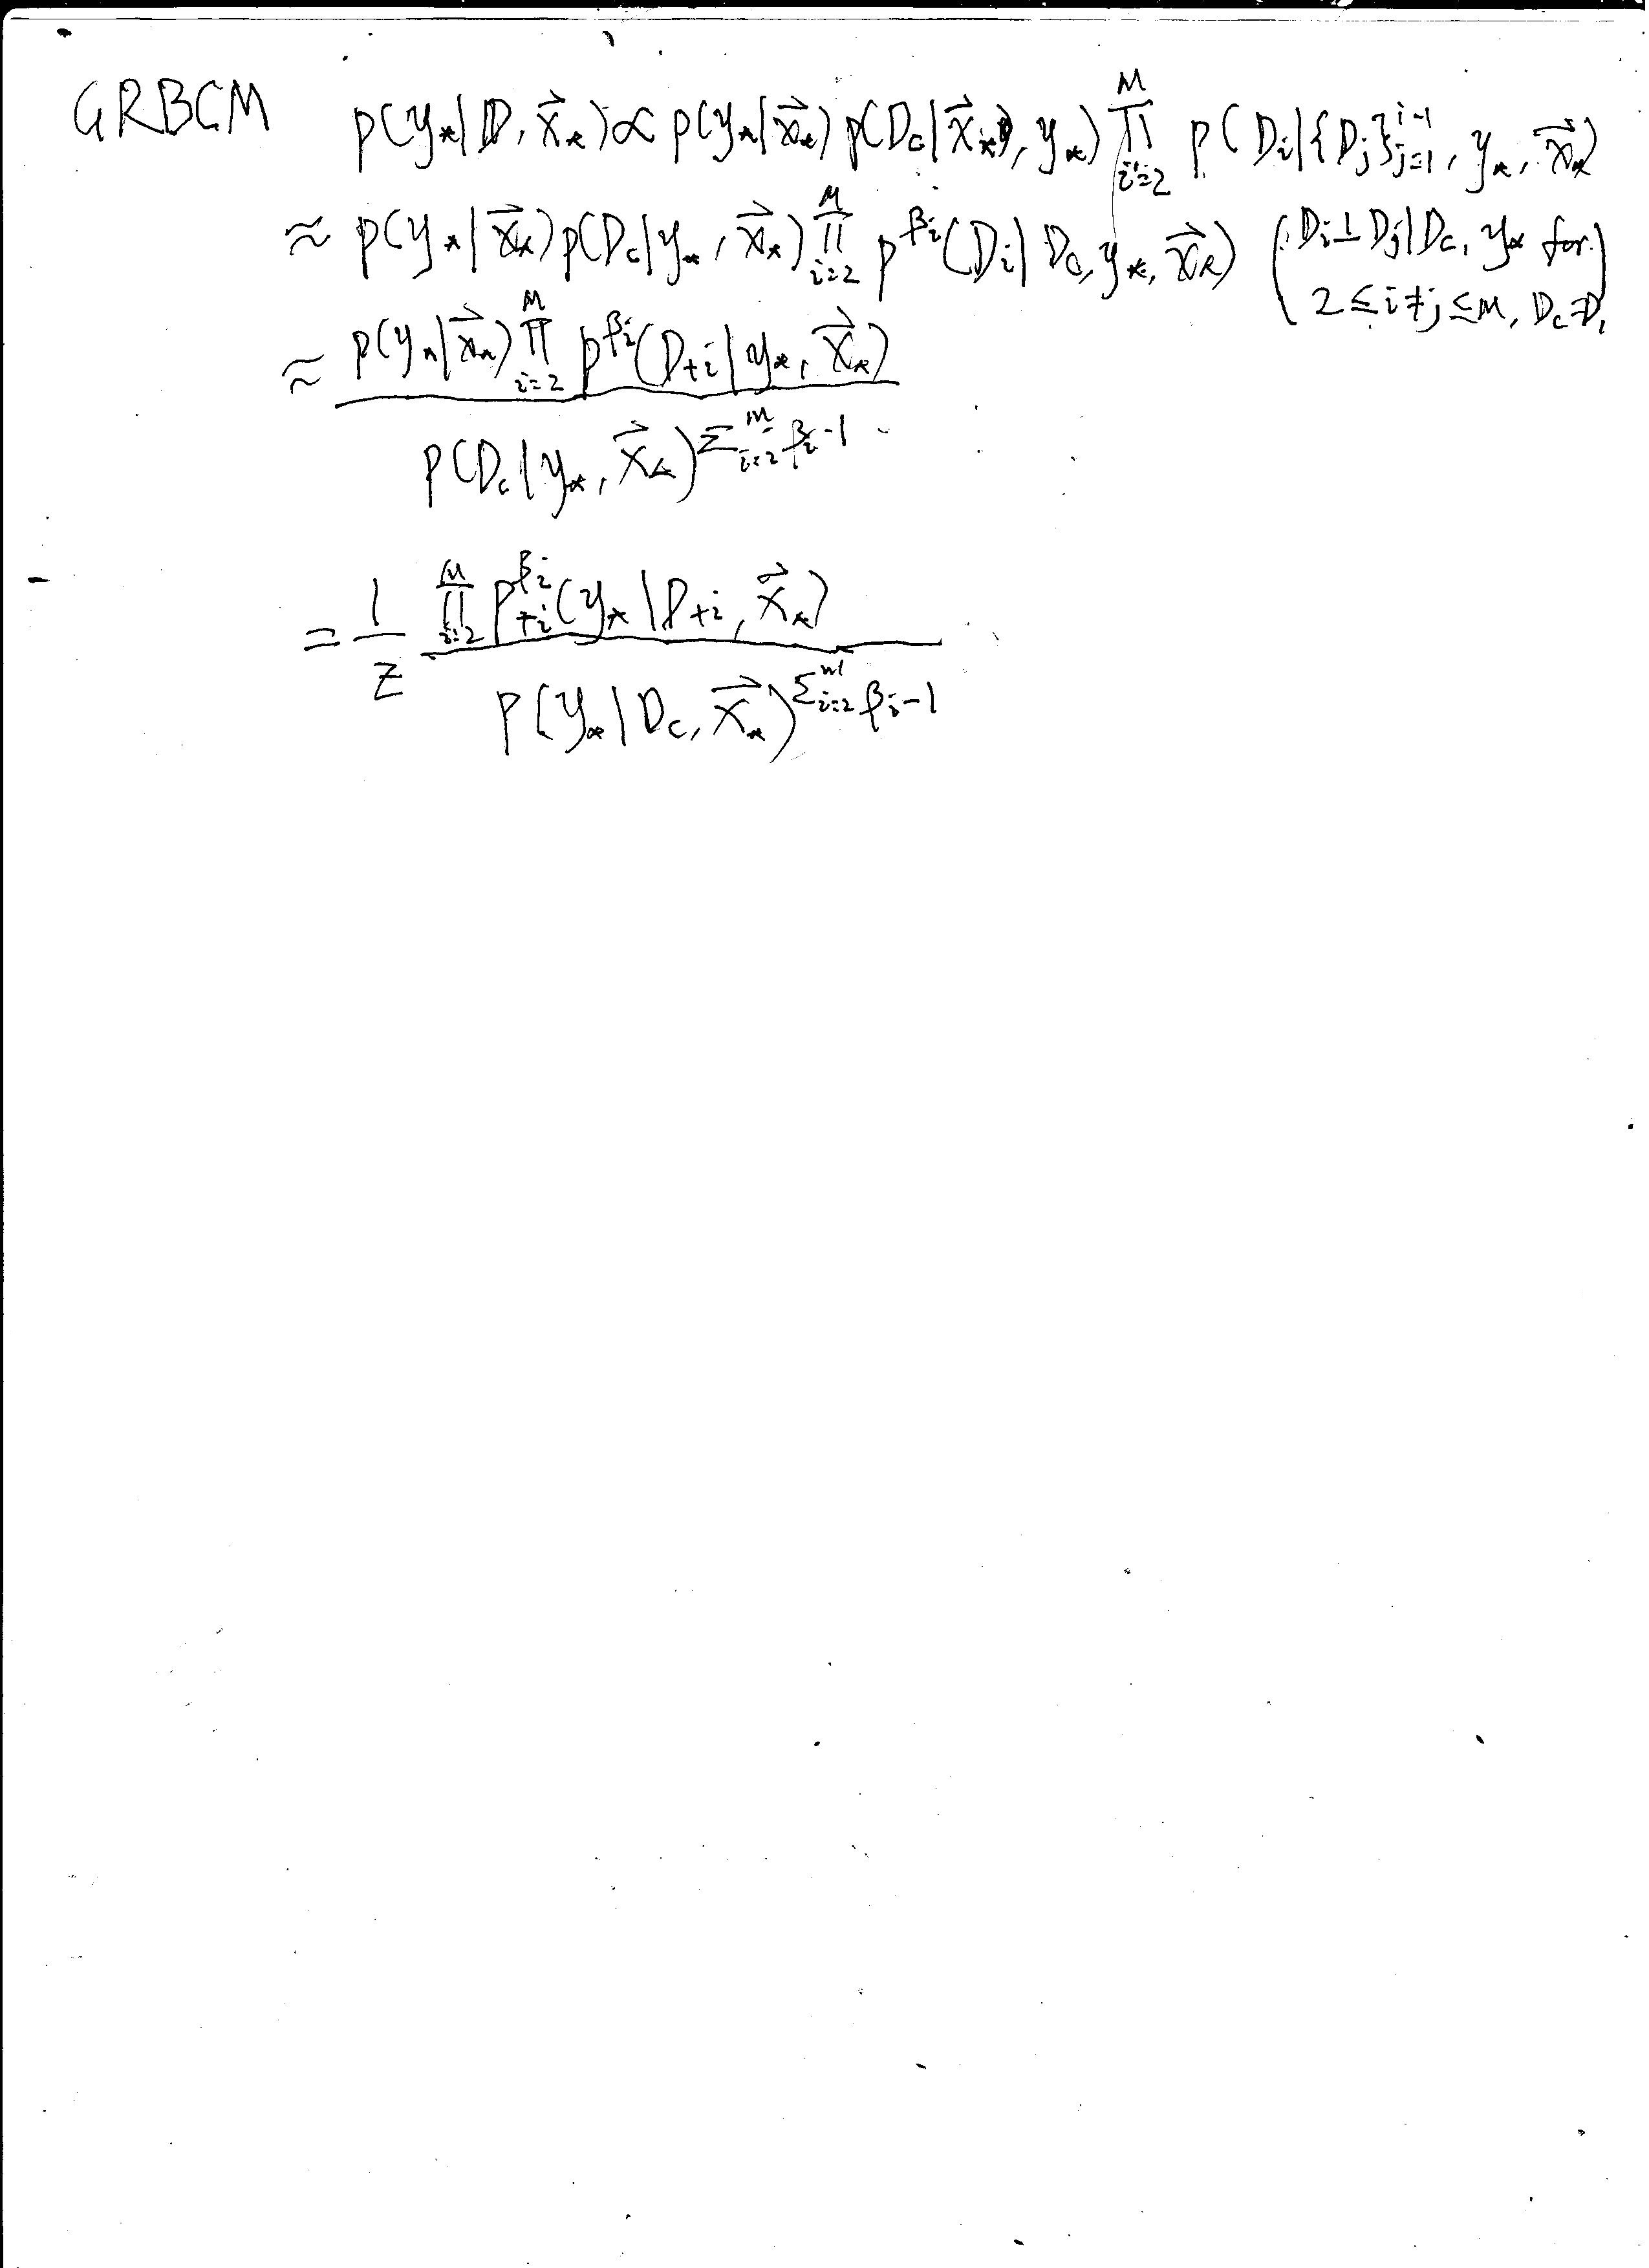 GRBCM p(y_*|D, \vec{x}_*) ∝ p(y_*|\vec{x}_*) p(D_c|\vec{x}_*, y_*) \prod_{i=2}^{M} p(D_i|{D_j}_{j=1}^{i-1}, y_*, \vec{x}_*)
≈ p(y_*|\vec{x}_*) p(D_c|y_*, \vec{x}_*) \prod_{i=2}^{M} p^{β_i}(D_i|D_c, y_*, \vec{x}_*) (D_i ⊥ D_j|D_c, y_* for
2 ≤ i ≠ j ≤ M, D_c = D_1
≈ p(y_*|\vec{x}_*) \prod_{i=2}^{M} p^{β_i}(D_{+i}|y_*, \vec{x}_*)
p(D_c|y_*, \vec{x}_*)^{Σ_{i=2}^{M} β_i - 1}
= \frac{1}{Z} \prod_{i=2}^{M} p_{+i}^{β_i}(y_*|D_{+i}, \vec{x}_*)
p(y_*|D_c, \vec{x}_*)^{Σ_{i=2}^{M} β_i - 1}